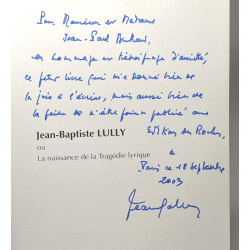 Pour Monsieur et Madame
Jean-Paul
en hommage et témoignage d'amitié,
ce petit livre qui m'a donné bien de
la joie à l'écrire, mais aussi bien de
la peine à n'être point publié aux
Jean-Baptiste LULLY
Edit. du Rocher,
ou
à
La naissance de la Tragédie lyrique
Paris ce 18 Septembre
2003